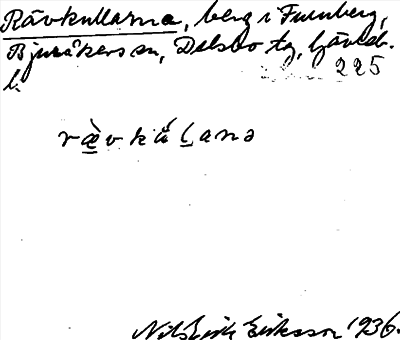 Rävkullarna, berg i Furuberg,
Bjuråkers sn, Delsbo tg, Gävleb.
l. 225
rævkåLanə
Nils Erik Eriksson 1936.